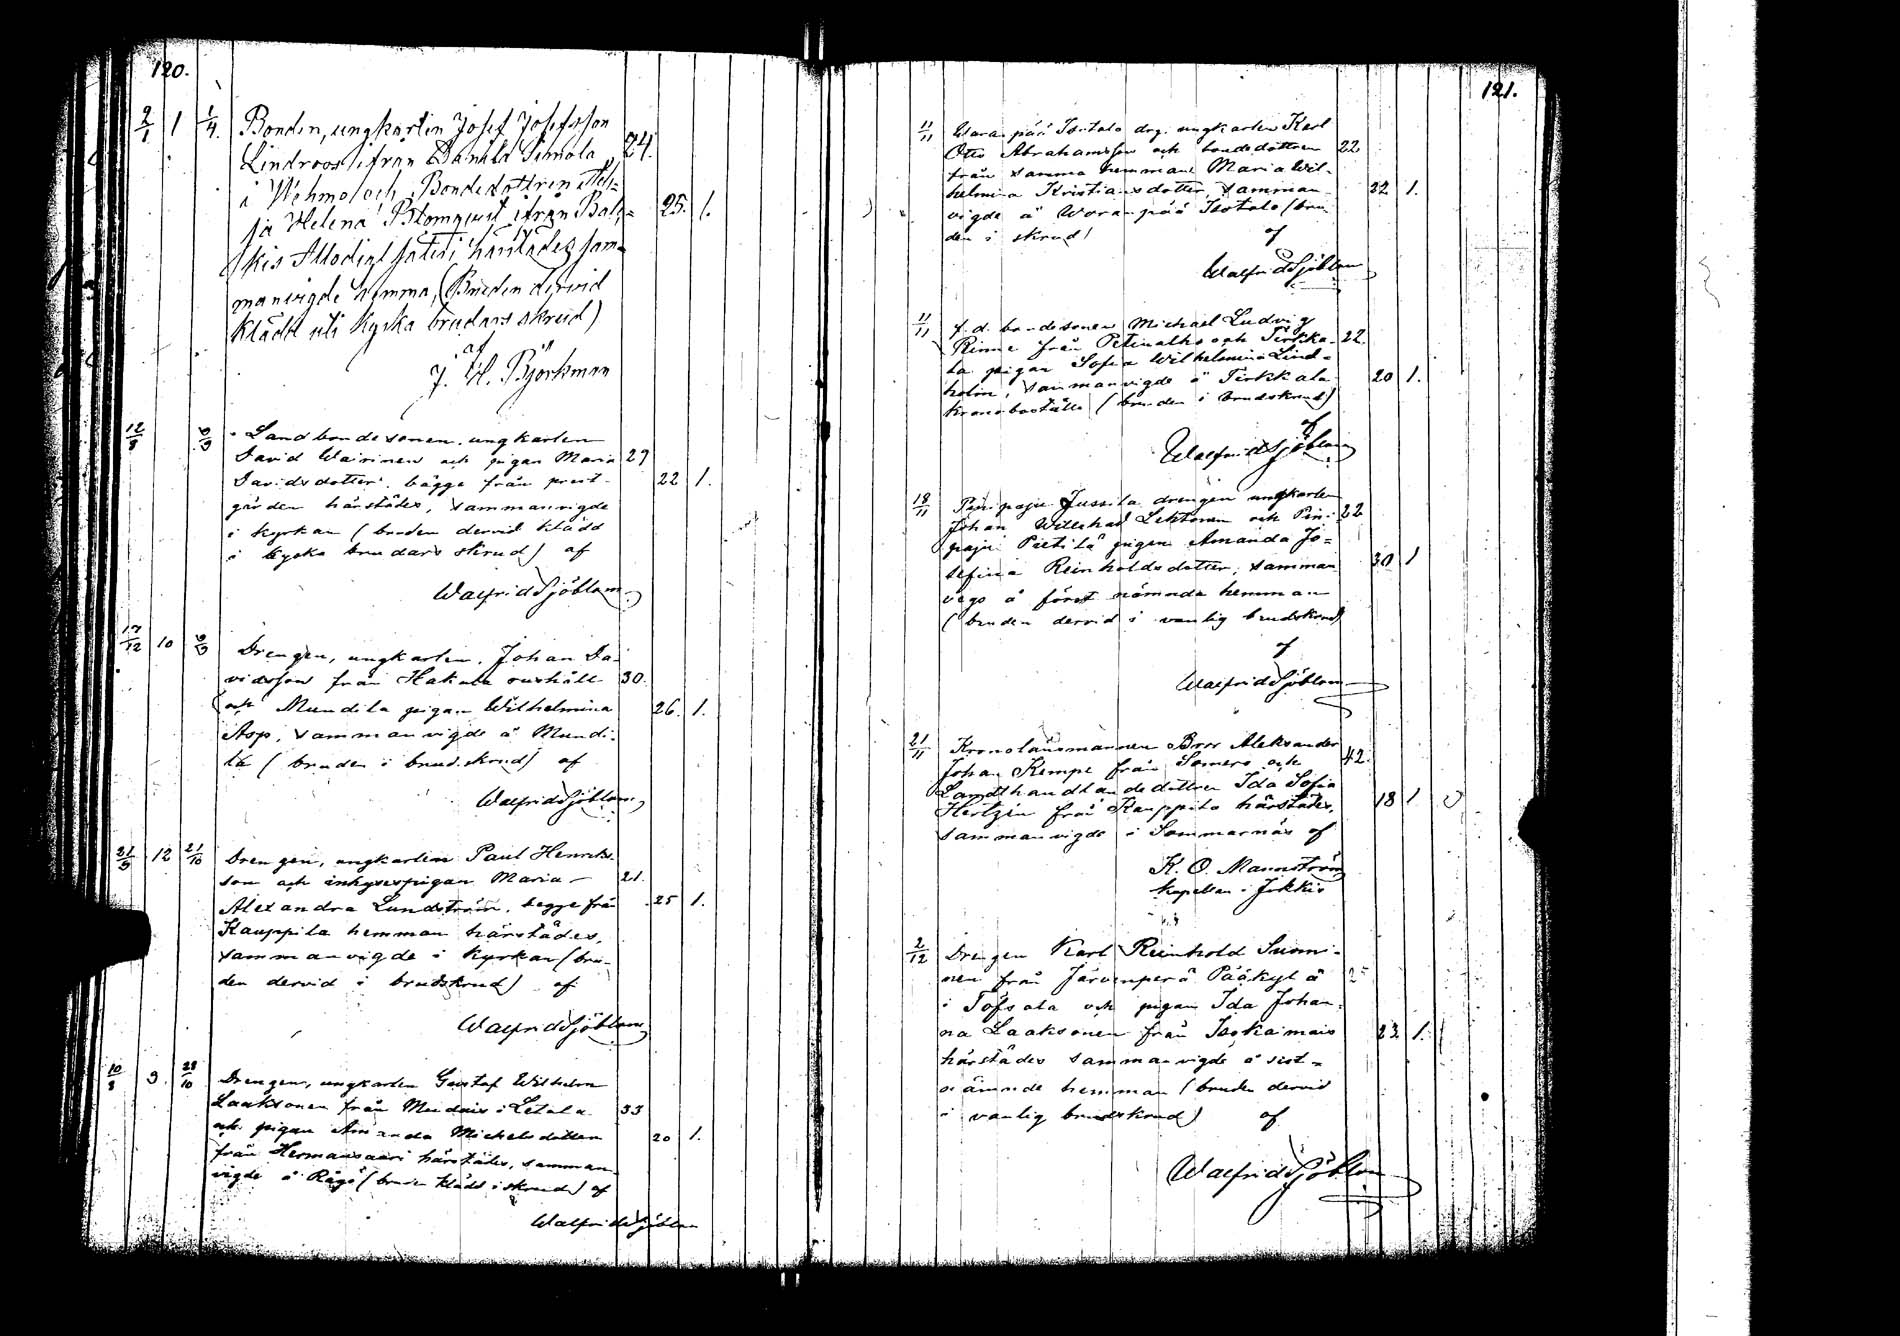 120.
2/1 1 1/4. Bonden, ungkarlen Josef Josefsson 24.
Lindroos ifrån Danila Simola
i Wehmo och Bondedottren
ja Helena Blomqvist ifrån Bal= 25. 1.
kis Allodial säteri härstädes sam=
manvigde hemma, (Bruden dervid
klädd uti kyska brudars skrud)
af
J. H. Björkman
12/8 Landbondesonen ungkarlen
David Wairinen och pigan Maria 27
Davidsdotter, bägge från prest- 22 1.
gården härstädes, sammanvigde
i kyrkan (bruden dervid klädd
i kyska brudars skrud) af
Walfrid Sjöblom
17/12 10 Drengen, ungkarlen, Johan Da-
vidsson från Hakula rushåll 30.
och Mundila pigan Wilhelmina 26. 1.
Asp, sammanvigde å Mundi-
la (bruden i brudskrud) af
Walfrid Sjöblom
21/9 12 21/10 Drengen, ungkarlen Paul Henriks-
son och inhysespigan Maria 21.
Alexandra Lundström, begge från 25 1.
Kauppila hemman härstädes,
sammanvigde i kyrkan (bru-
den dervid i brudskrud) af
Walfrid Sjöblom
10/8 9. 28/10 Drengen, ungkarlen Gustaf Wilhelm
Laaksonen från i Letala 33
och pigan Amanda Michelsdotter 20 1.
från Hermansaari härstädes, samman-
vigde å Rågö (bruden klädd i skrud) af
Walfrid Sjöblom
121.
11/11 Waranpää Isotalo drg. ungkarlen Karl
Otto Abrahamsson och bondedottren 22
från samma hemman Maria Wil-
helmina Kristiansdotter, samman- 22 1.
vigde å Waranpää Isotalo (bru-
den i skrud)
af
Walfrid Sjöblom
11/11 f.d. bondesonen Michael Ludvig
Rinne från och Tirkka- 22.
la pigan Sofia Wilhelmina Lind-
holm, sammanvigde å Tirkkala 20 1.
kronoboställe (bruden i brudskrud)
af
Walfrid Sjöblom
18/11 Piinipaju Jussila drengen ungkarlen
Johan Lehtonen och Pini- 22
paju Pietilä pigan Amanda Jo=
sefina Reinholdsdotter, samman- 30 1
vigs å först nämnda hemman
(bruden dervid i vanlig brudskrud)
af
Walfrid Sjöblom
21/11 Kronolänsmannen Bror Aleksander
Johan Kempe från Somero och 42.
Landthandlandedottren Ida Sofia
Hertzin från Kauppila härstädes, 18 1
sammanvigde i Sommarnäs af
K. O. Mannström
kapellan i Jokkis
2/12 Drengen Karl Reinhold Suomi-
nen från Järvenperä Pääkylä
i Töfsala och pigan Ida Johan-
na Laaksonen från 23 1.
härstädes sammanvigde å sist-
nämnde hemman (bruden dervid
i vanlig brudskrud) af
Walfrid Sjöblom